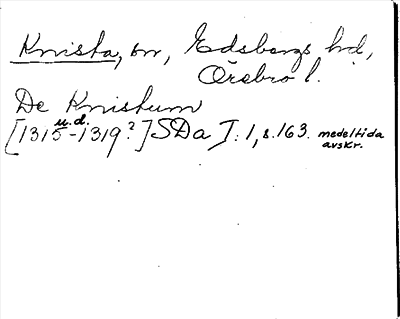 Knista, sn, Edsbergs hd,
Örebro l.
De Knistum
u.d.
[1315-1319?] SDa I: 1, s. 163. medeltida
avskr.